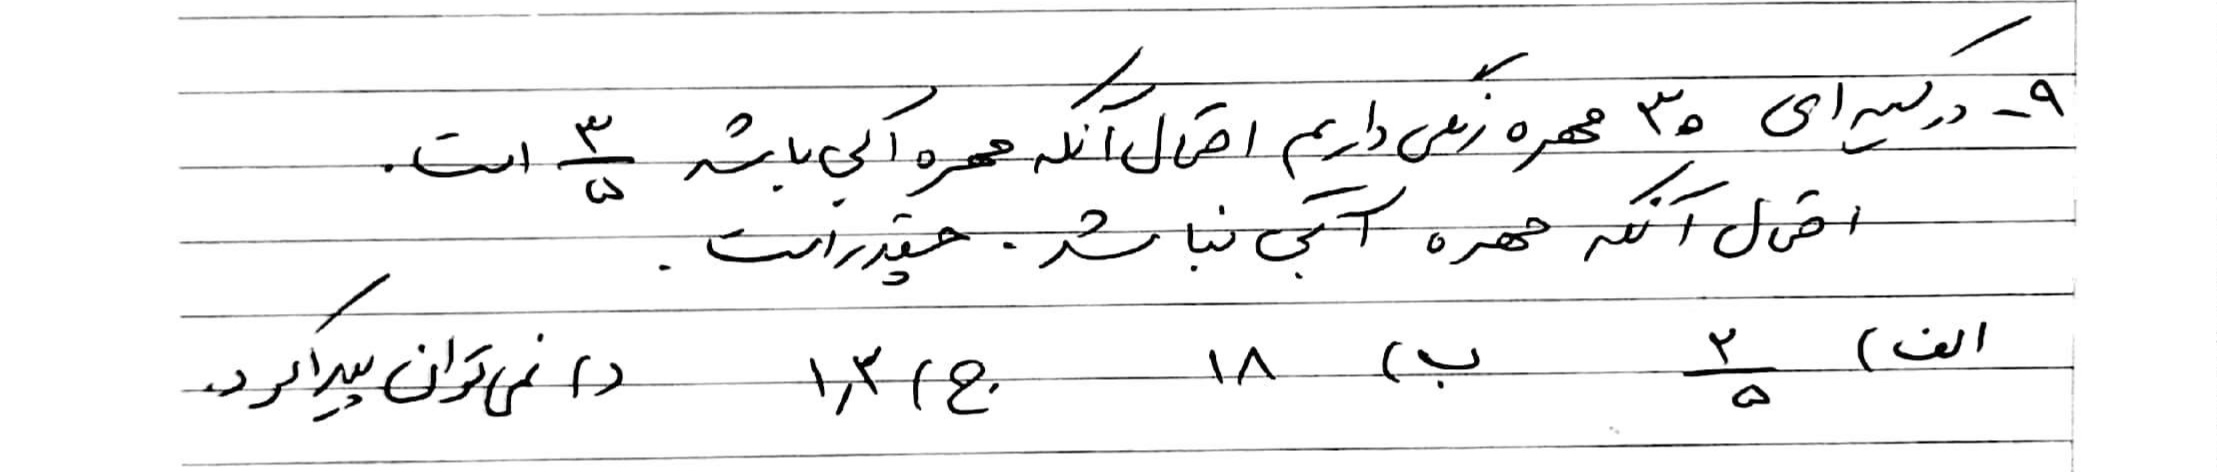 ۹- در کیسه ای ۳۰ مهره رنگی داریم احتمال آنکه مهره آبی باشد ۳/۵ است.
احتمال آنکه مهره آبی نباشد. چقدر است.
الف) ۲/۵ ب) ۱۸ ج) ۱٫۳ د) نمی توان پیدا کرد.